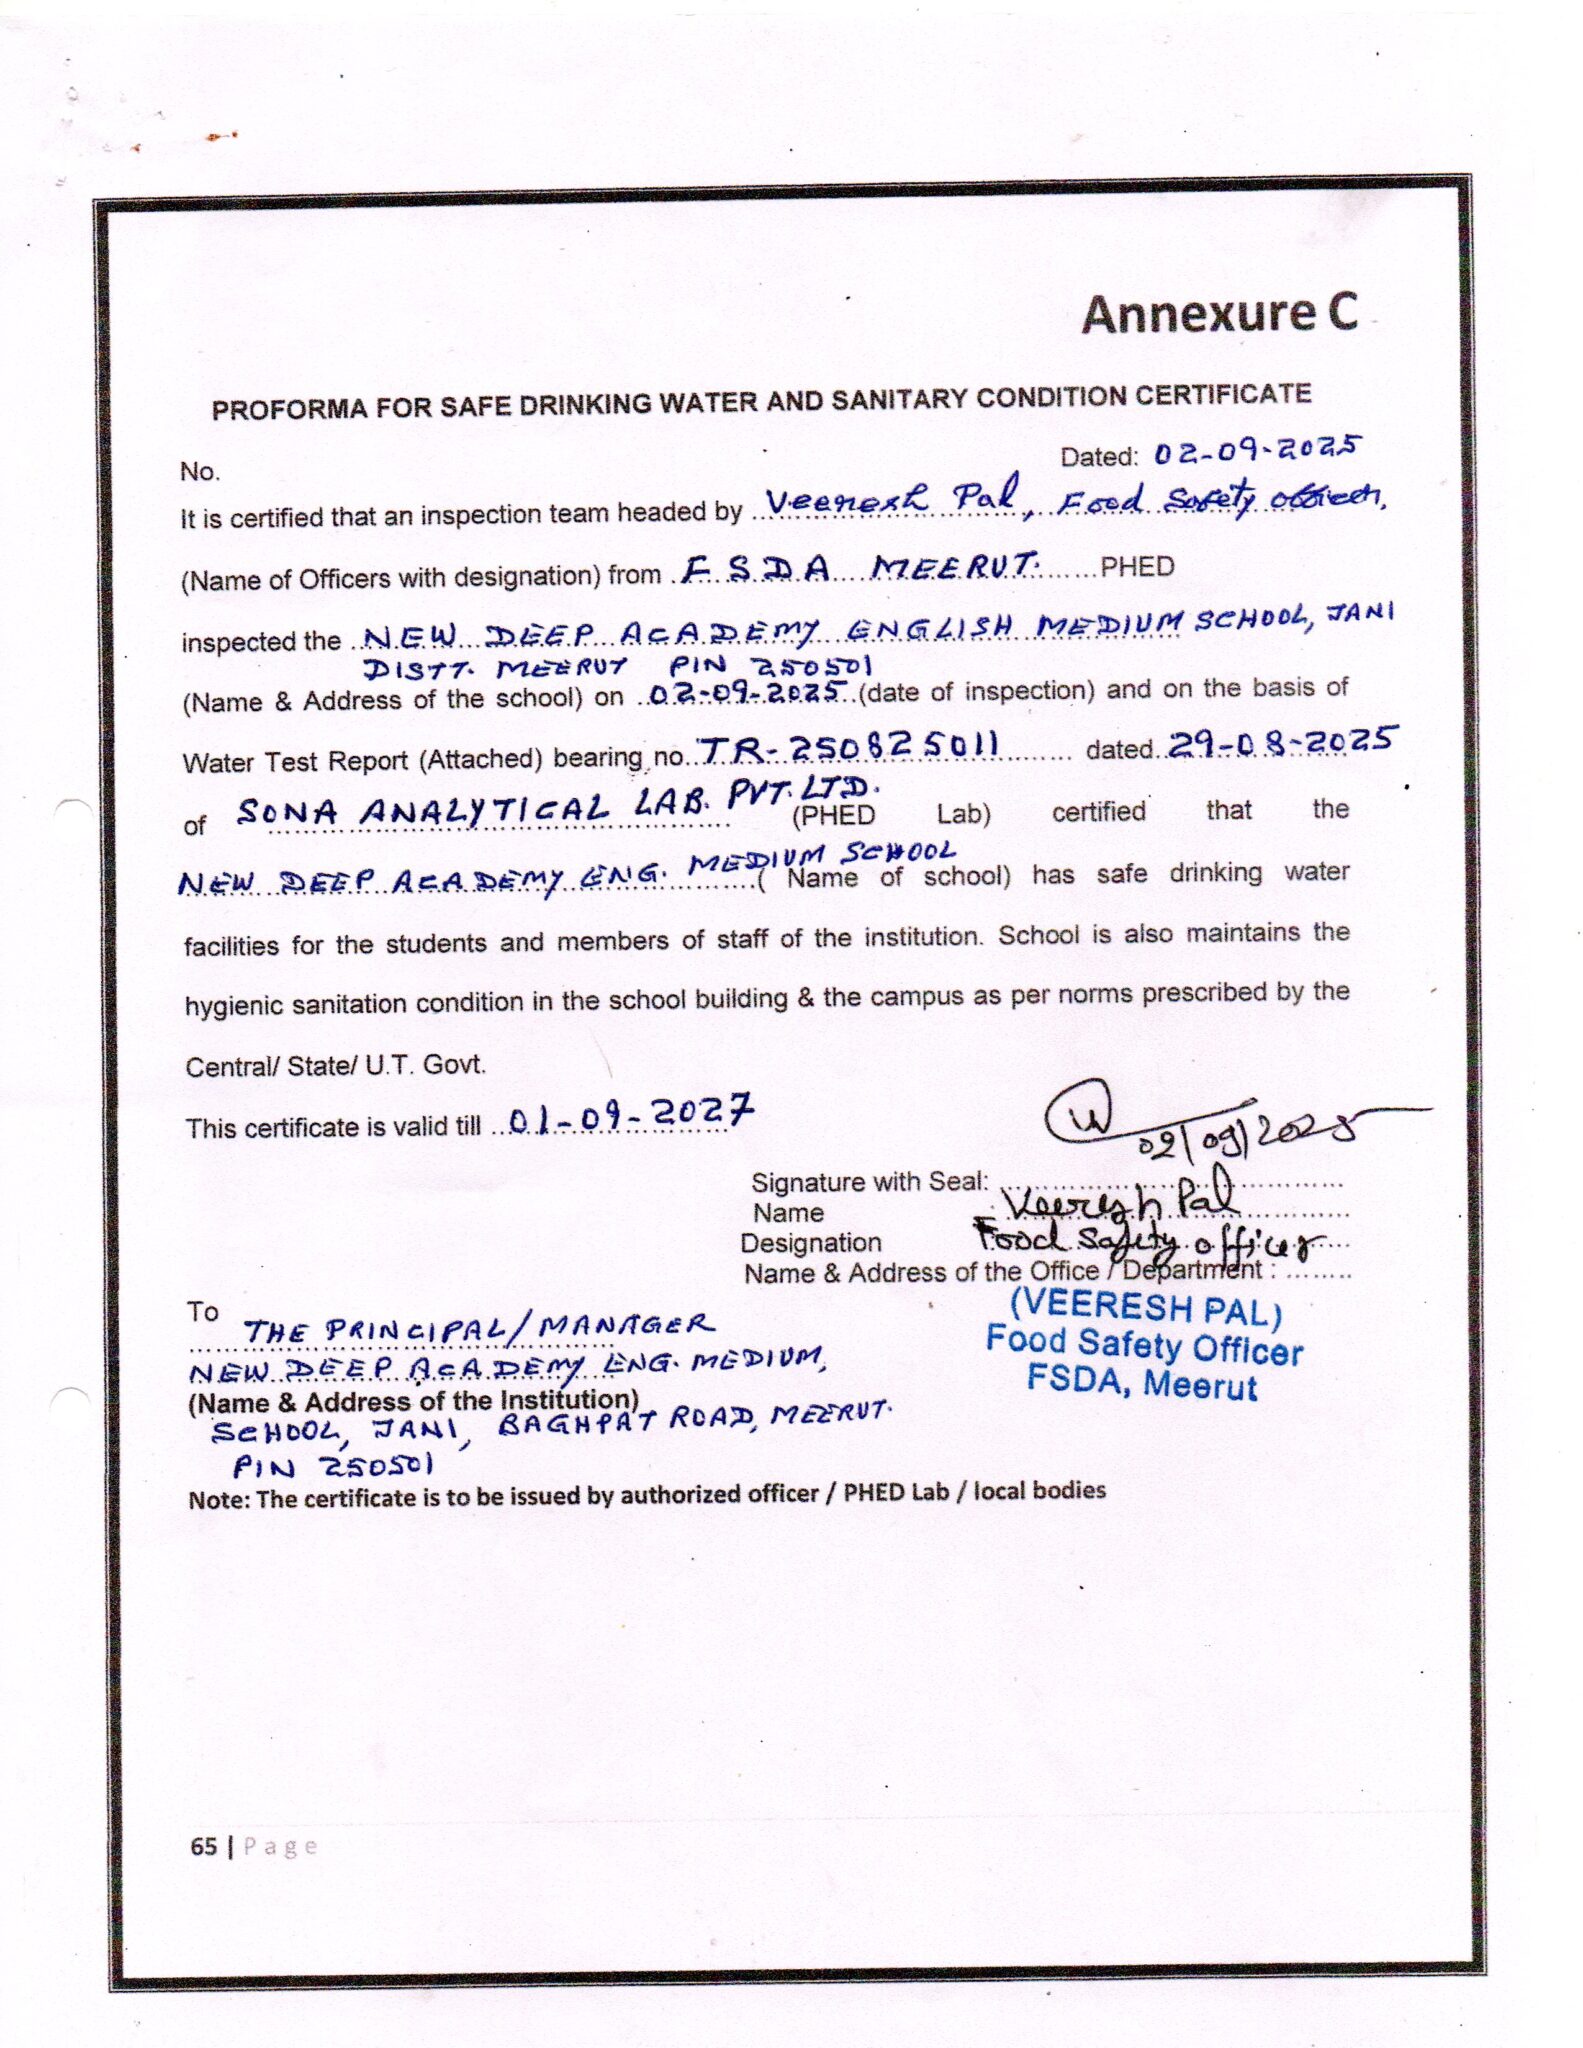 Annexure C
PROFORMA FOR SAFE DRINKING WATER AND SANITARY CONDITION CERTIFICATE
No. Dated: 02-09-2025
It is certified that an inspection team headed by Veeresh Pal, Food Safety Officer,
(Name of Officers with designation) from F S D A MEERUT. PHED
inspected the NEW DEEP ACADEMY ENGLISH MEDIUM SCHOOL, JANI
DISTT. MEERUT PIN 250501
(Name & Address of the school) on 02-09-2025 (date of inspection) and on the basis of
Water Test Report (Attached) bearing no. TR-250825011 dated 29-08-2025
of SONA ANALYTICAL LAB. PVT. LTD. (PHED Lab) certified that the
NEW DEEP ACADEMY ENG. MEDIUM SCHOOL ( Name of school) has safe drinking water
facilities for the students and members of staff of the institution. School is also maintains the
hygienic sanitation condition in the school building & the campus as per norms prescribed by the
Central/ State/ U.T. Govt.
This certificate is valid till 01-09-2027
02/09/2025
Signature with Seal:
Name Veeresh Pal
Designation Food Safety Officer
Name & Address of the Office / Department :
(VEERESH PAL)
Food Safety Officer
FSDA, Meerut
To THE PRINCIPAL/MANAGER
NEW DEEP ACADEMY ENG. MEDIUM,
(Name & Address of the Institution)
SCHOOL, JANI, BAGHPAT ROAD, MEERUT.
PIN 250501
Note: The certificate is to be issued by authorized officer / PHED Lab / local bodies
65 | Page